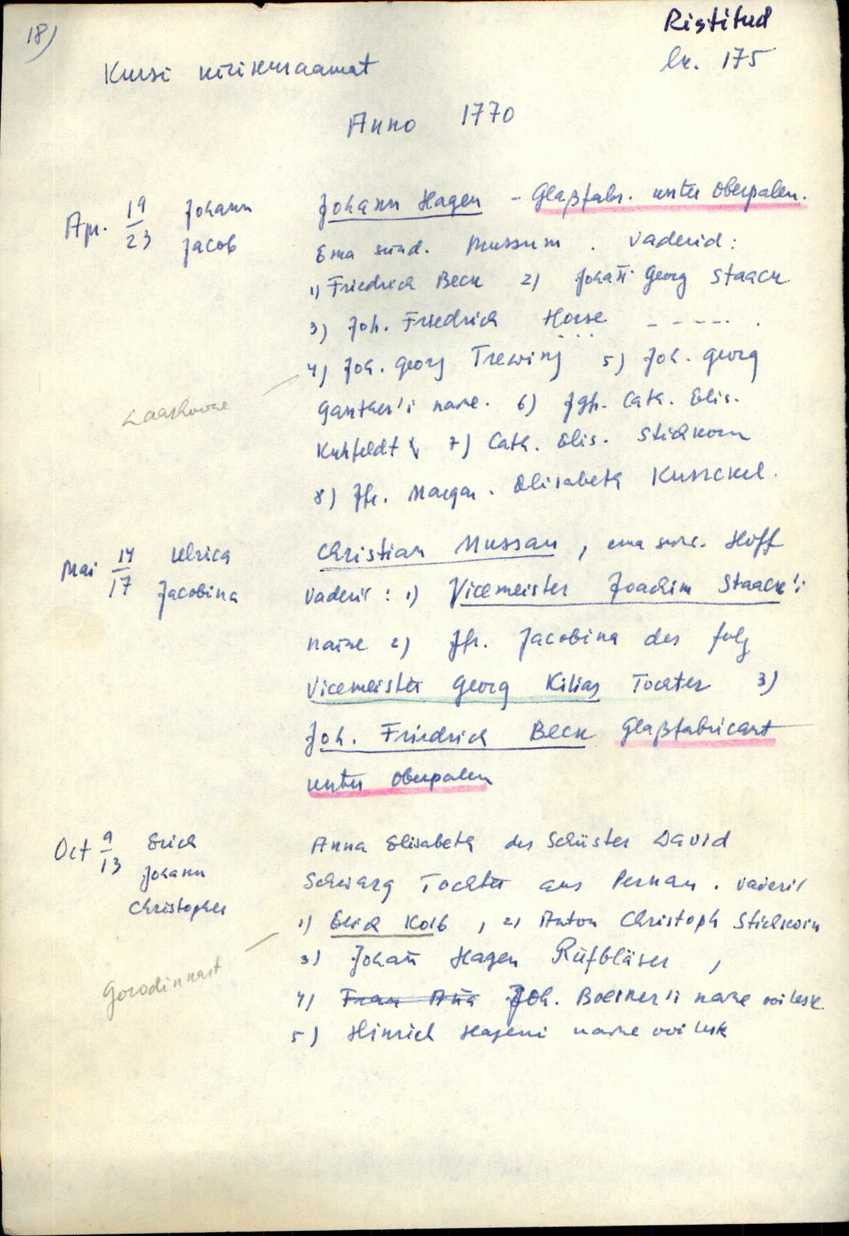 18)
Ristitud
lk. 175
Kursi kirikuraamat
Anno 1770
Apr. 19/23 Johann Jacob
Johann Hagen - Glaßfabr. unter Oberpalen.
Ema sünd. Mussum. Vaderid:
1) Friedrich Beck 2) Johañ Georg Staack
3) Joh. Friedrich Hose - - - - .
4) Joh. Georg Trewing 5) Joh. Georg
naine. 6) Jgfr. Cath. Elis.
Kuhfeldt 7) Cath. Elis. Stickkorn
8) Jfr. Margar. Elisabeth
Mai 14/17 Ulrica Jacobina
Christian Mussau, ema sünd. Hoff
Vaderid: 1) Vicemeister Joachim Staack'i
naine 2) Jfr. Jacobina des
Vicemeister Georg Kilias Tochter 3)
Joh. Friedrich Beck Glaßfabricant
unter Oberpalen
Oct 9/13 Erich Johann Christopher
Anna Elisabeth des Schüster David
Schwarz Tochter aus Pernau. Vaderid
1) Erich Kolb, 2) Anton Christoph Stickkorn
3) Johañ Hagen Rüfbläser,
4) Frau Aña Joh. Boerner'i naine või lesk
5) Hinrich Hageni naine või lesk